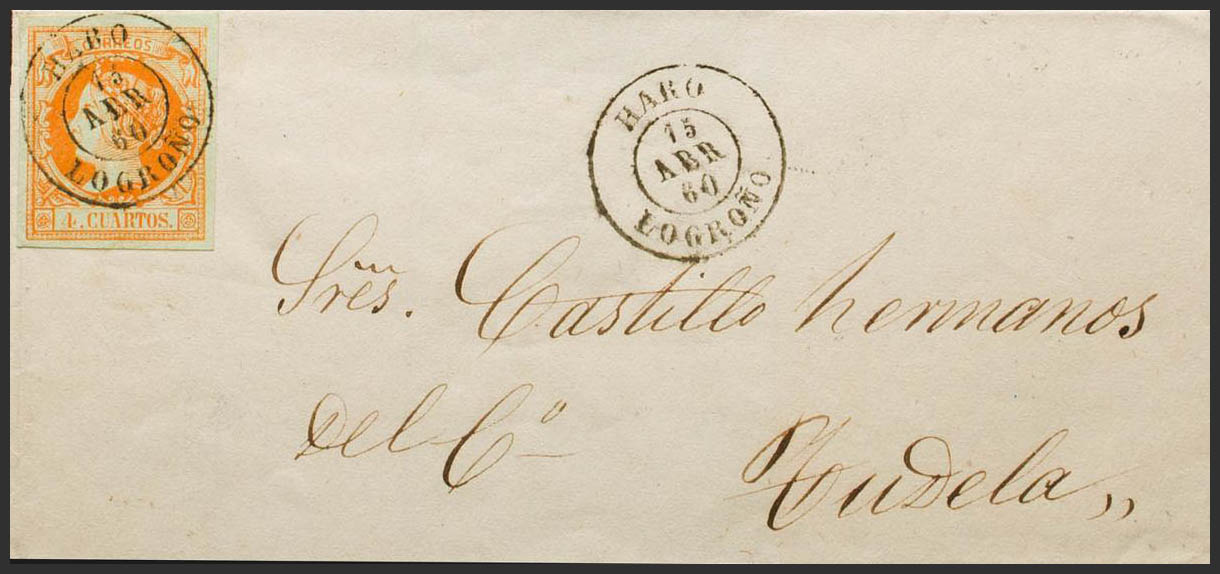 CORREOS
HARO
15
ABR
60
LOGROÑO
4. CUARTOS.
HARO
15
ABR
60
LOGROÑO
Sres. Castillo hermanos
del Cº
Tudela,,